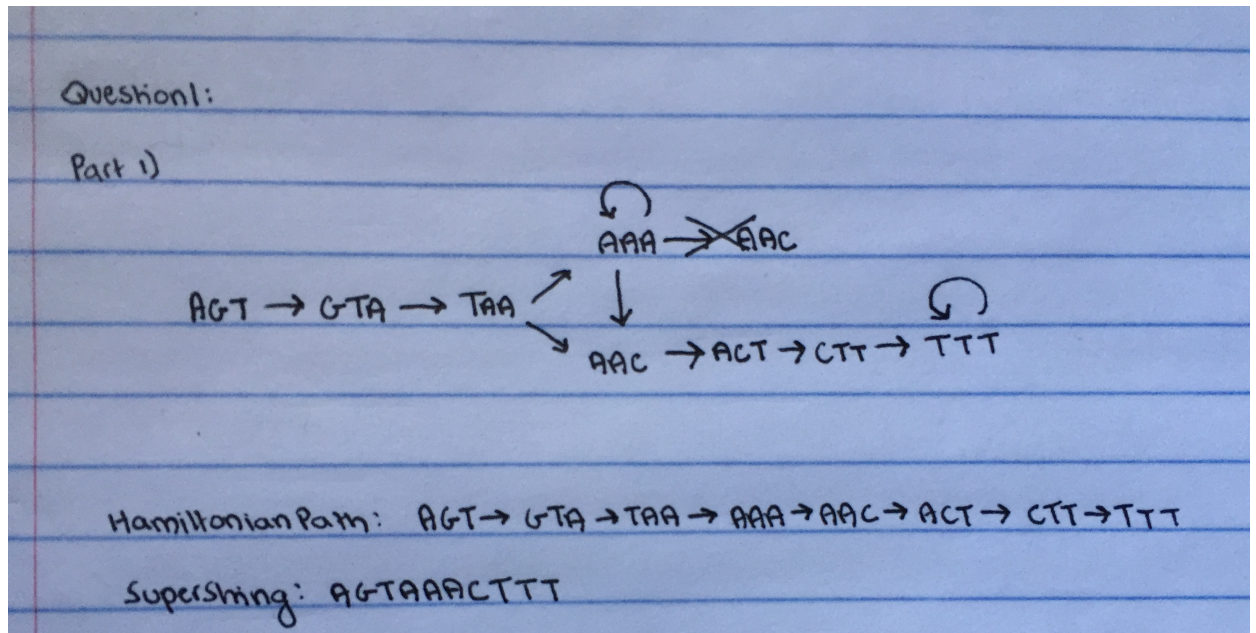 Question1:
Part 1)
AAA → AAC
AGT → GTA → TAA
AAC → ACT → CTT → TTT
Hamiltonian Path: AGT → GTA → TAA → AAA → AAC → ACT → CTT → TTT
Superstring: AGTAAACTTT